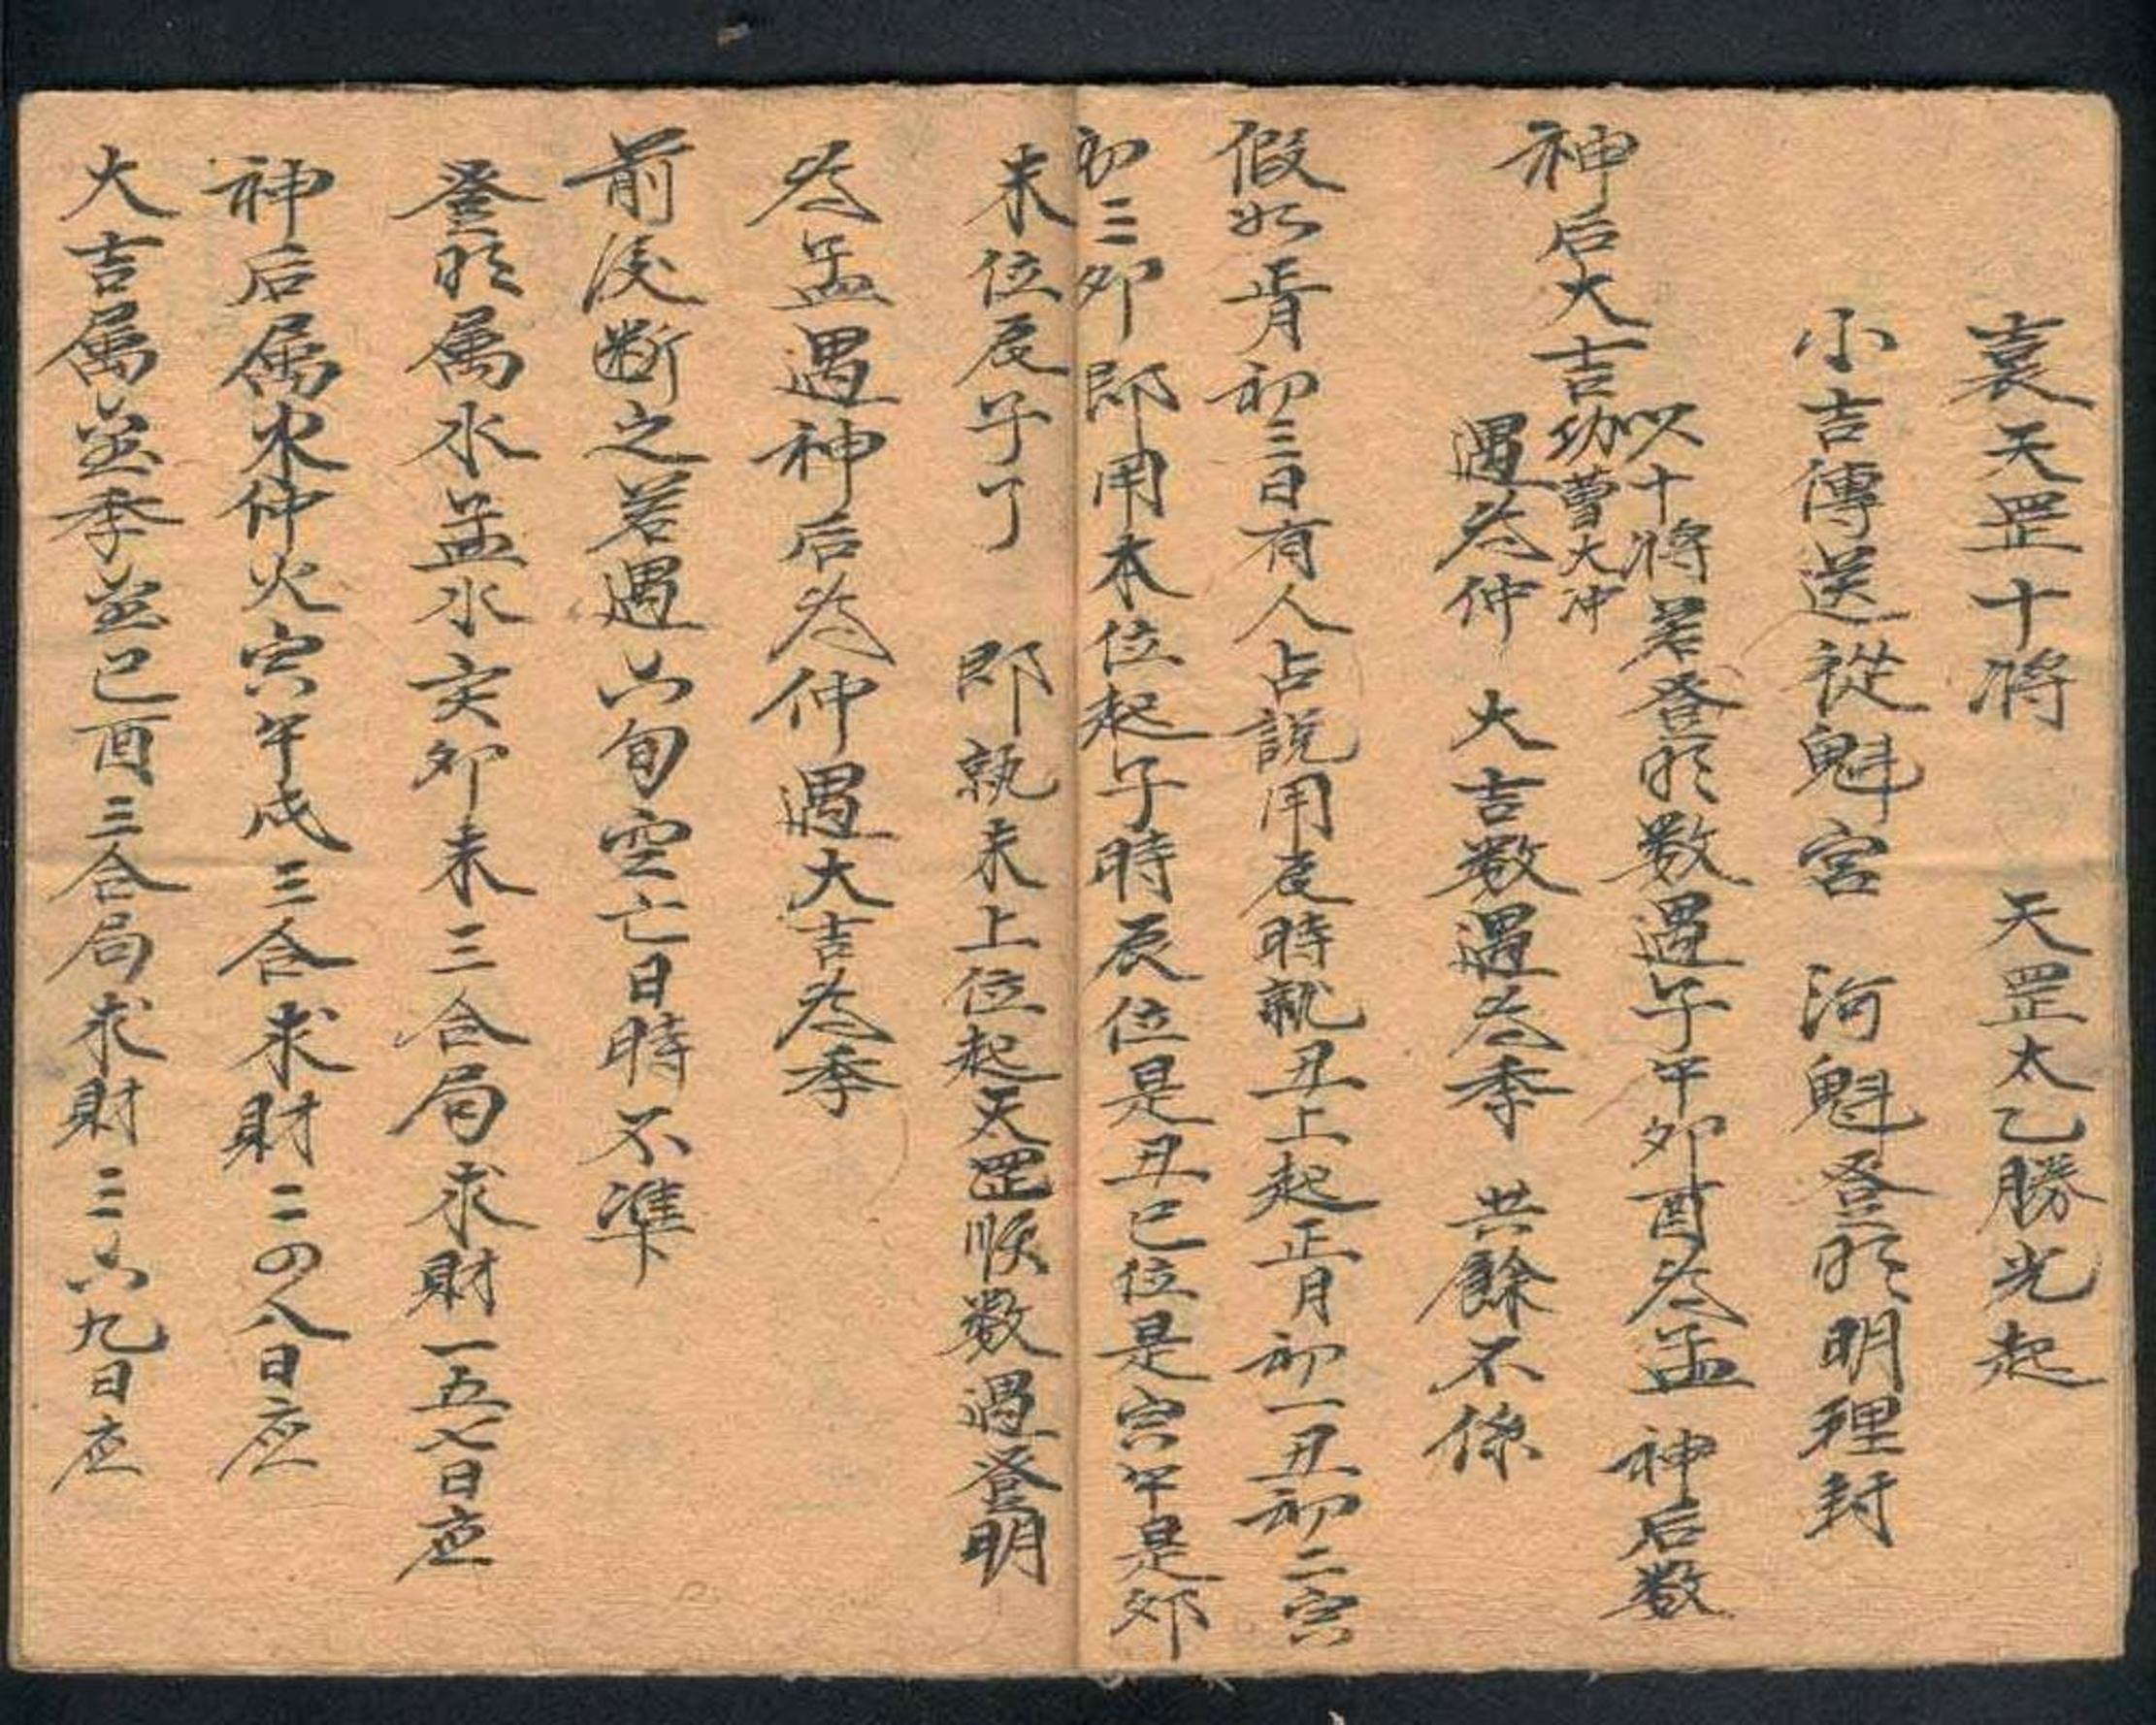 袁天罡十将　天罡太乙勝光起
小吉傳送從魁宮　河魁登明明理封
神后大吉功曹大冲
以十将若登明数遇子午卯酉為孟　神后数
遇為仲　大吉数遇為季　共餘不係
假如正月初三日有人占説用辰時就丑上起正月初一丑初二寅
初三卯即用本位起子時辰位是丑巳位是寅午是卯
未位辰字了　即執未上位起天罡順数遇登明
為孟遇神后為仲遇大吉為季
前後断之若遇六旬空亡日時不準
登明属水孟水亥卯未三合局求財一五七日应
神后属水仲火寅午戌三合求財二四八日应
大吉属並季並巳酉三合局求財三六九日应